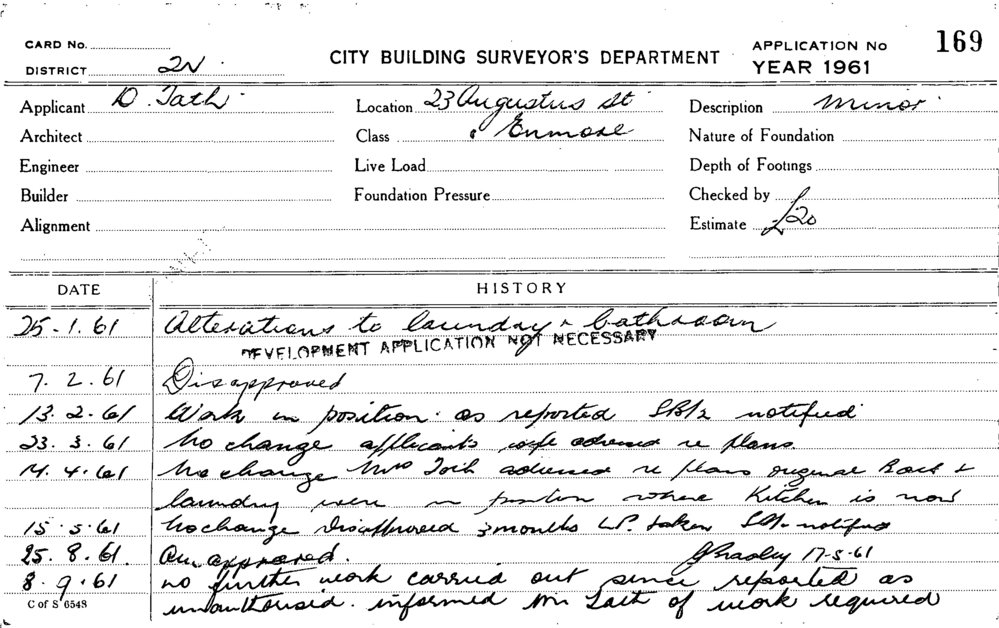 CARD No.
DISTRICT 2N
CITY BUILDING SURVEYOR'S DEPARTMENT
APPLICATION No 169
YEAR 1961
Applicant D. Toth Location 23 Augustus St Description Minor
Architect Class Enmore Nature of Foundation
Engineer Live Load Depth of Footings
Builder Foundation Pressure Checked by
Alignment Estimate £20
DATE HISTORY
25.1.61 Alterations to laundry & bathroom
DEVELOPMENT APPLICATION NOT NECESSARY
7.2.61 Disapproved
13.2.61 Work in position as reported notified
23.3.61 No change applicants wife advised re plans.
14.4.61 No change Mrs Toth advised re plans original Bath &
laundry were in position where Kitchen is now
15.5.61 No change Disapproved 3 months taken notified
25.8.61 approved. 17-5-61
8.9.61 no further work carried out since reported as
unauthorised. informed Mr Toth of work required
C of S 6548